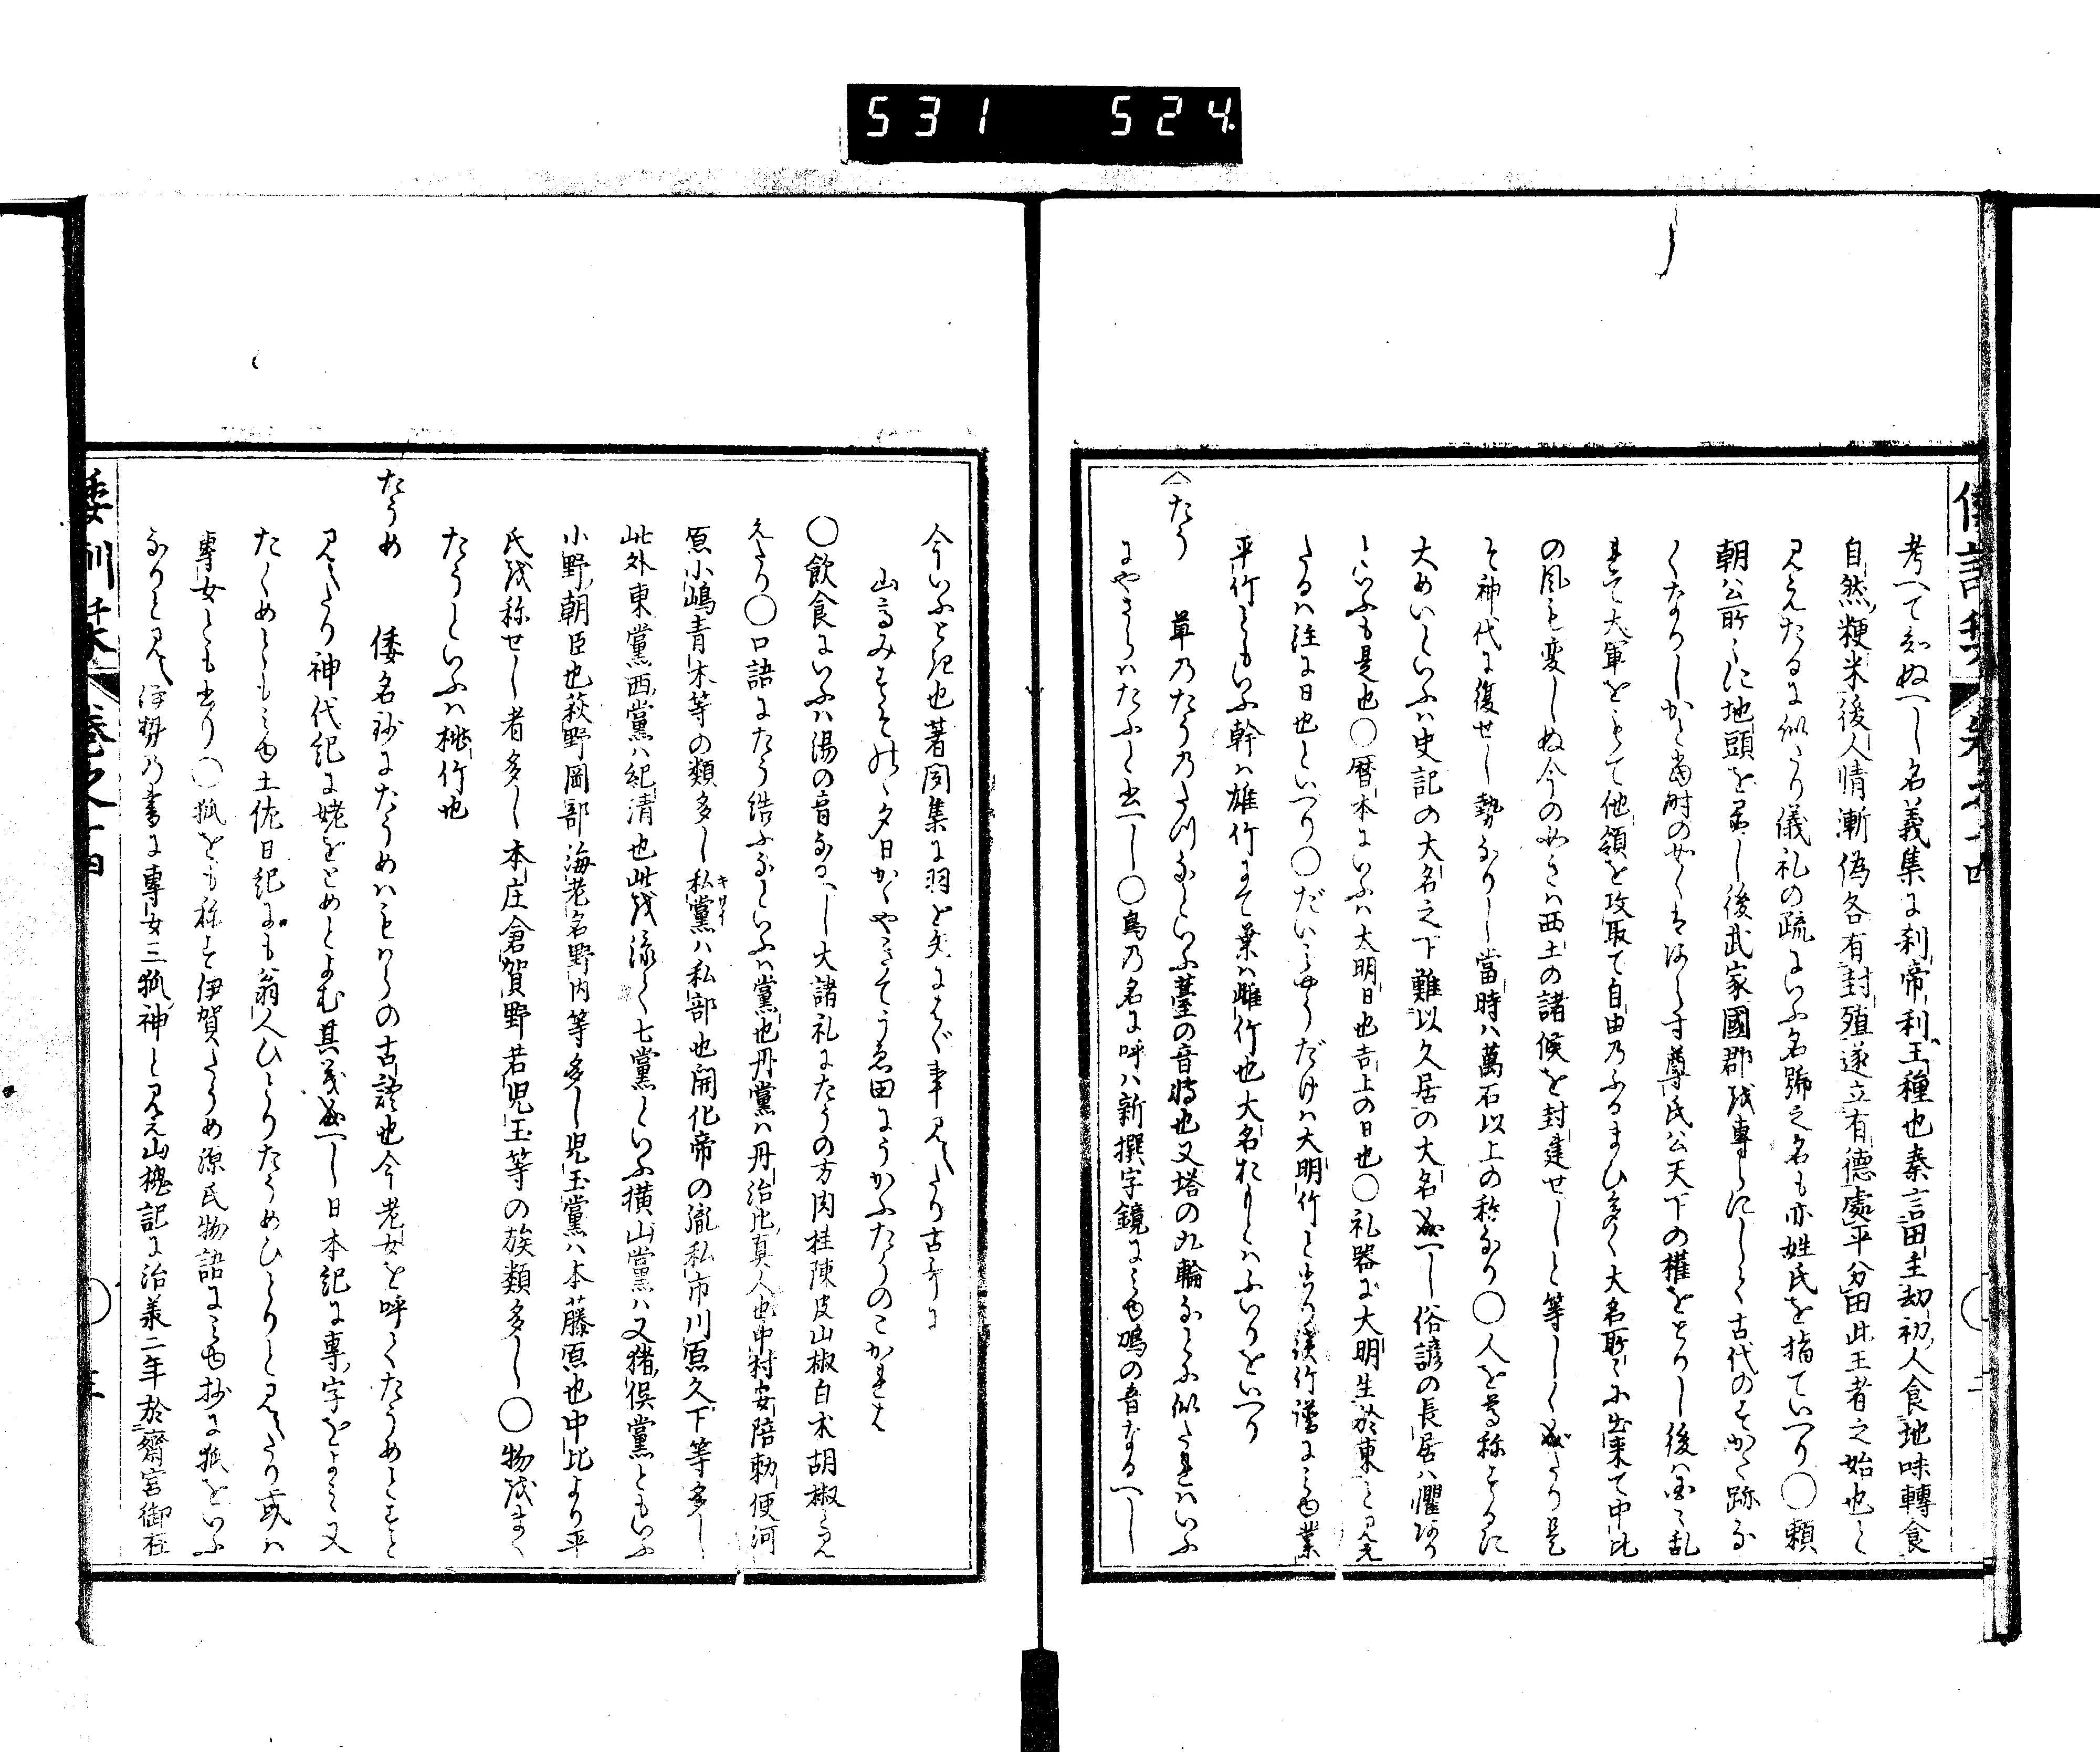 531 524
考へて知ぬへし名義集に刹帝利王種也秦言田主劫初人食地味轉食
自然粳米後人情漸偽各有封殖遂立有德處平分田此王者之始也と
見えたるに似たり儀礼の疏にいふ名號之名も亦姓氏を指ていへり○頼
朝公所々に地頭を居し後武家國郡を專らにしく古代のすかた跡な
くなりしかと當時の如くはあらす尊氏公天下の權をとりし後は國々乱
まて大軍をもて他領を攻取て自由乃ふるまひ多く大名所々に出来て中比
の風も変しぬ今の如きは西土の諸侯を封建せしと等しく成たり是
そ神代に復せし勢なりし當時は萬石以上の称なり○人を尊称するに
大めいといふは史記の大名之下難以久居の大名成へし俗諺の長居は懼あり
といふも是也○暦本にいふは大明日也吉上の日也○礼器に大明生於東と見え
たるは注に日也といへり○だいみやうだけは大明竹と書り續竹譜にみゆ業
平竹ともいふ幹は雄竹にて葉は雌竹也大名おもとはふいりをいへり
たう　草乃たう乃たつなといふ薹の音轉也又塔の九輪なとに似たれはいふ
にやさらはたふと書へし○鳥乃名に呼は新撰字鏡にみゆ鴇の音なるへし
倭訓栞 巻之十四
今いふとき也著聞集に羽を矢にはく事見えたり古哥に
山高みすそ乃ゝ夕日かくやきてうゑ田にうかふたうのこかれは
○飲食にいふは湯の音なるへし大諸礼にたうの方肉桂陳皮山椒白朮胡椒と見
えたり○口語にたう結ふなといふは黨也丹黨は丹治比真人也中村安陪勅使河
原小嶋青木等の類多し私黨は私部也開化帝の流私市川原久下等多し
キサイ
此外東黨西黨は紀清也此を添て七黨といふ横山黨は又猪俣黨ともいふ
小野朝臣也萩野岡部海老名野内等多し児玉黨は本藤原也中比より平
氏を称せし者多し本庄倉賀野若児玉等の族類多し○物をまく
たうといふは桃竹也
たうめ　倭名抄にたうめはもはらの古語也今老女を呼てたうめとすと
見えたり神代紀に姥をとめとよむ其義成へし日本紀に專字をよみ又
たくめともみゆ土佐日記にも翁人ひとりたうめひとりと見えたり或は
專女とも書り○狐をも称す伊賀たうめ源氏物語にみゆ抄に狐をいふ
なりと見ゆ伊勢乃書に專女三狐神と見え山槐記に治承二年於齋宮御在
倭訓栞 巻之十四 三